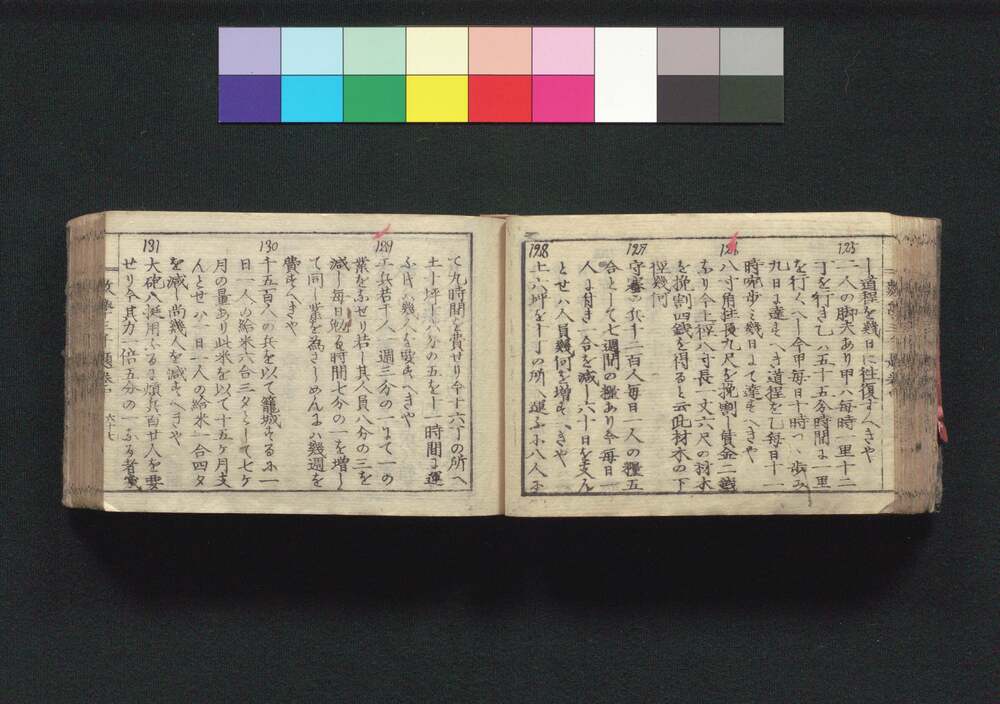 125
一道程を幾日に往復すへきや
二人の脚夫あり甲ハ毎時一里十二
丁を行き乙ハ五十五分時間に一里
を行くへし今甲毎日十時つゝ歩み
九日に達すへき道程を乙毎日十一
時宛歩ミ幾日にて達すへきや
126
八寸角柱長九尺を挽割し賃金二錢
なり今上桱八寸長一丈六尺の材木
を挽割四錢を得ると云此材木の下
桱幾何
127
守塞の兵千二百人毎日一人の糧五
合として七週間の糧あり今毎日一
人に付き一合を減し六十日を支ん
とせハ人員幾何を増すへきや
128
土六坪を十丁の所へ運ふに八人に
て九時間を費せり今十六丁の所へ
土十坪十六分の五を十一時間に運
ふにハ幾人を要すへきや
129
工兵若干人一週三分の一にて一の
業をなせり若し其人員八分の三を
減し毎日勉る時間七分の一を増し
て同し業を為さしめんにハ幾週を
費すへきや
130
千五百人の兵を以て籠城するに一
日一人の給米六合三夕として七ケ
月の量あり此米を以て十五ケ月支
んとせハ今日一人の給米一合四夕
を減し尚幾人を減すへきや
131
大砲八挺用ふるに煩兵百廿人を要
せり今其力一倍五分の一なる者
數學三千題卷 六十七